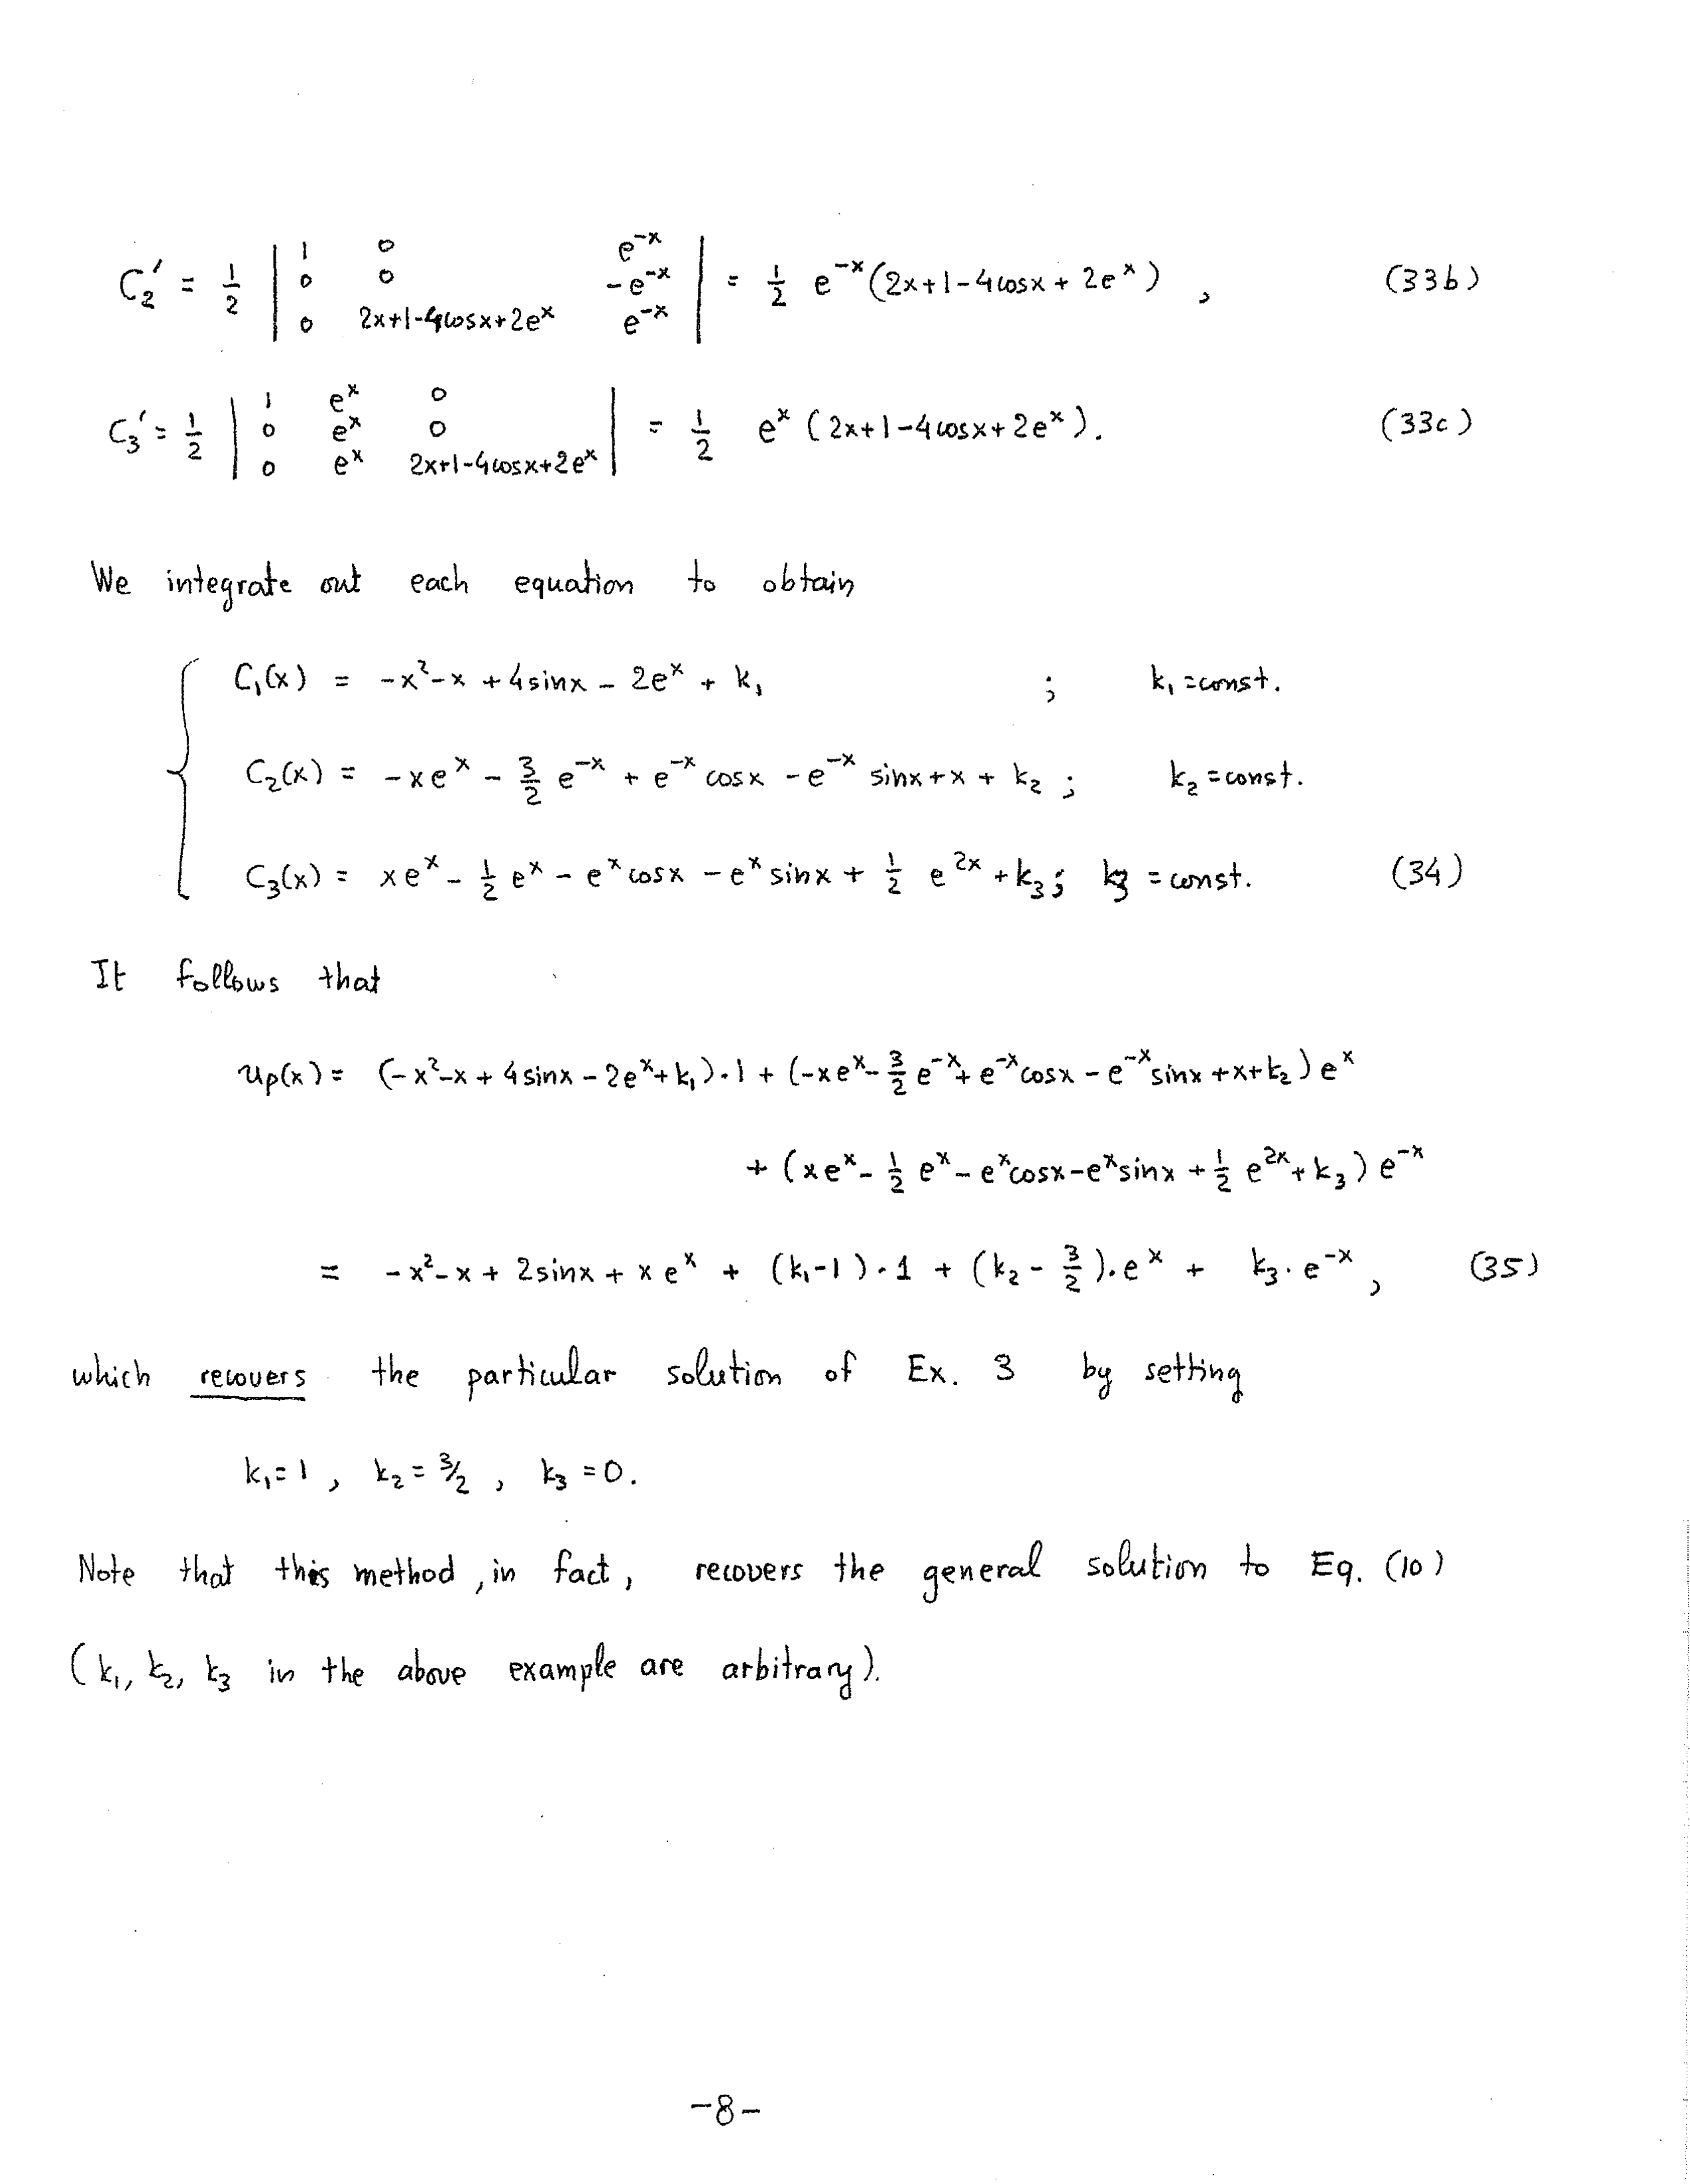 C₂' = 1/2 | 1 0 e⁻ˣ ; 0 0 -e⁻ˣ ; 0 2x+1-4cosx+2eˣ e⁻ˣ | = 1/2 e⁻ˣ(2x+1-4cosx+2eˣ) , (33b)
C₃' = 1/2 | 1 eˣ 0 ; 0 eˣ 0 ; 0 eˣ 2x+1-4cosx+2eˣ | = 1/2 eˣ (2x+1-4cosx+2eˣ). (33c)
We integrate out each equation to obtain
C₁(x) = -x²-x+4sinx-2eˣ+k₁ ; k₁=const.
C₂(x) = -xeˣ - 3/2 e⁻ˣ + e⁻ˣ cosx - e⁻ˣ sinx+x+k₂ ; k₂=const.
C₃(x) = xeˣ - 1/2 eˣ - eˣcosx - eˣsinx + 1/2 e²ˣ +k₃; k₃ = const. (34)
It follows that
up(x) = (-x²-x+4sinx-2eˣ+k₁)·1 + (-xeˣ- 3/2 e⁻ˣ+e⁻ˣcosx - e⁻ˣsinx+x+k₂)eˣ
+ (xeˣ- 1/2 eˣ-eˣcosx-eˣsinx+ 1/2 e²ˣ+k₃)e⁻ˣ
= -x²-x+2sinx+xeˣ + (k₁-1)·1 + (k₂- 3/2)·eˣ + k₃·e⁻ˣ, (35)
which recovers the particular solution of Ex. 3 by setting
k₁=1 , k₂=3/2 , k₃=0.
Note that this method, in fact, recovers the general solution to Eq. (10)
(k₁, k₂, k₃ in the above example are arbitrary).
-8-